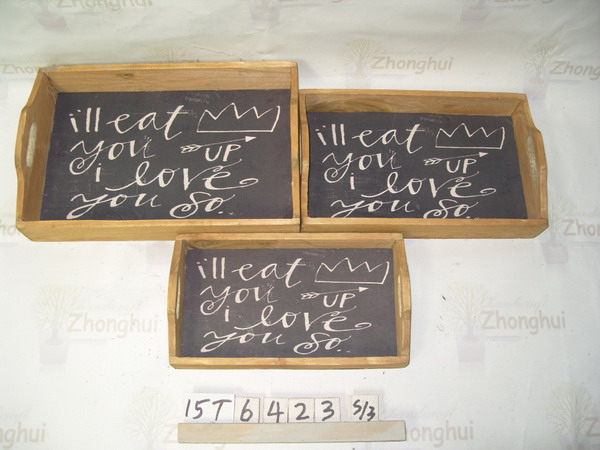 Zhonghui
Zhonghui
Zhonghui
i'll eat
you UP
i love
you So.
i'll eat
you UP
i love
you So.
i'll eat
you UP
i love
you So.
Zhonghui
Zhonghui
15T6423 S/3
Zhonghui
Zhonghui